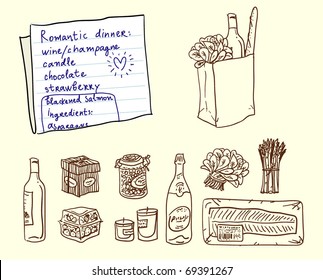 Romantic dinner:
wine/champagne
candle
chocolate
strawberry
Blackened Salmon
Ingredients:
Asparagus
shutterstock.com · 69391267